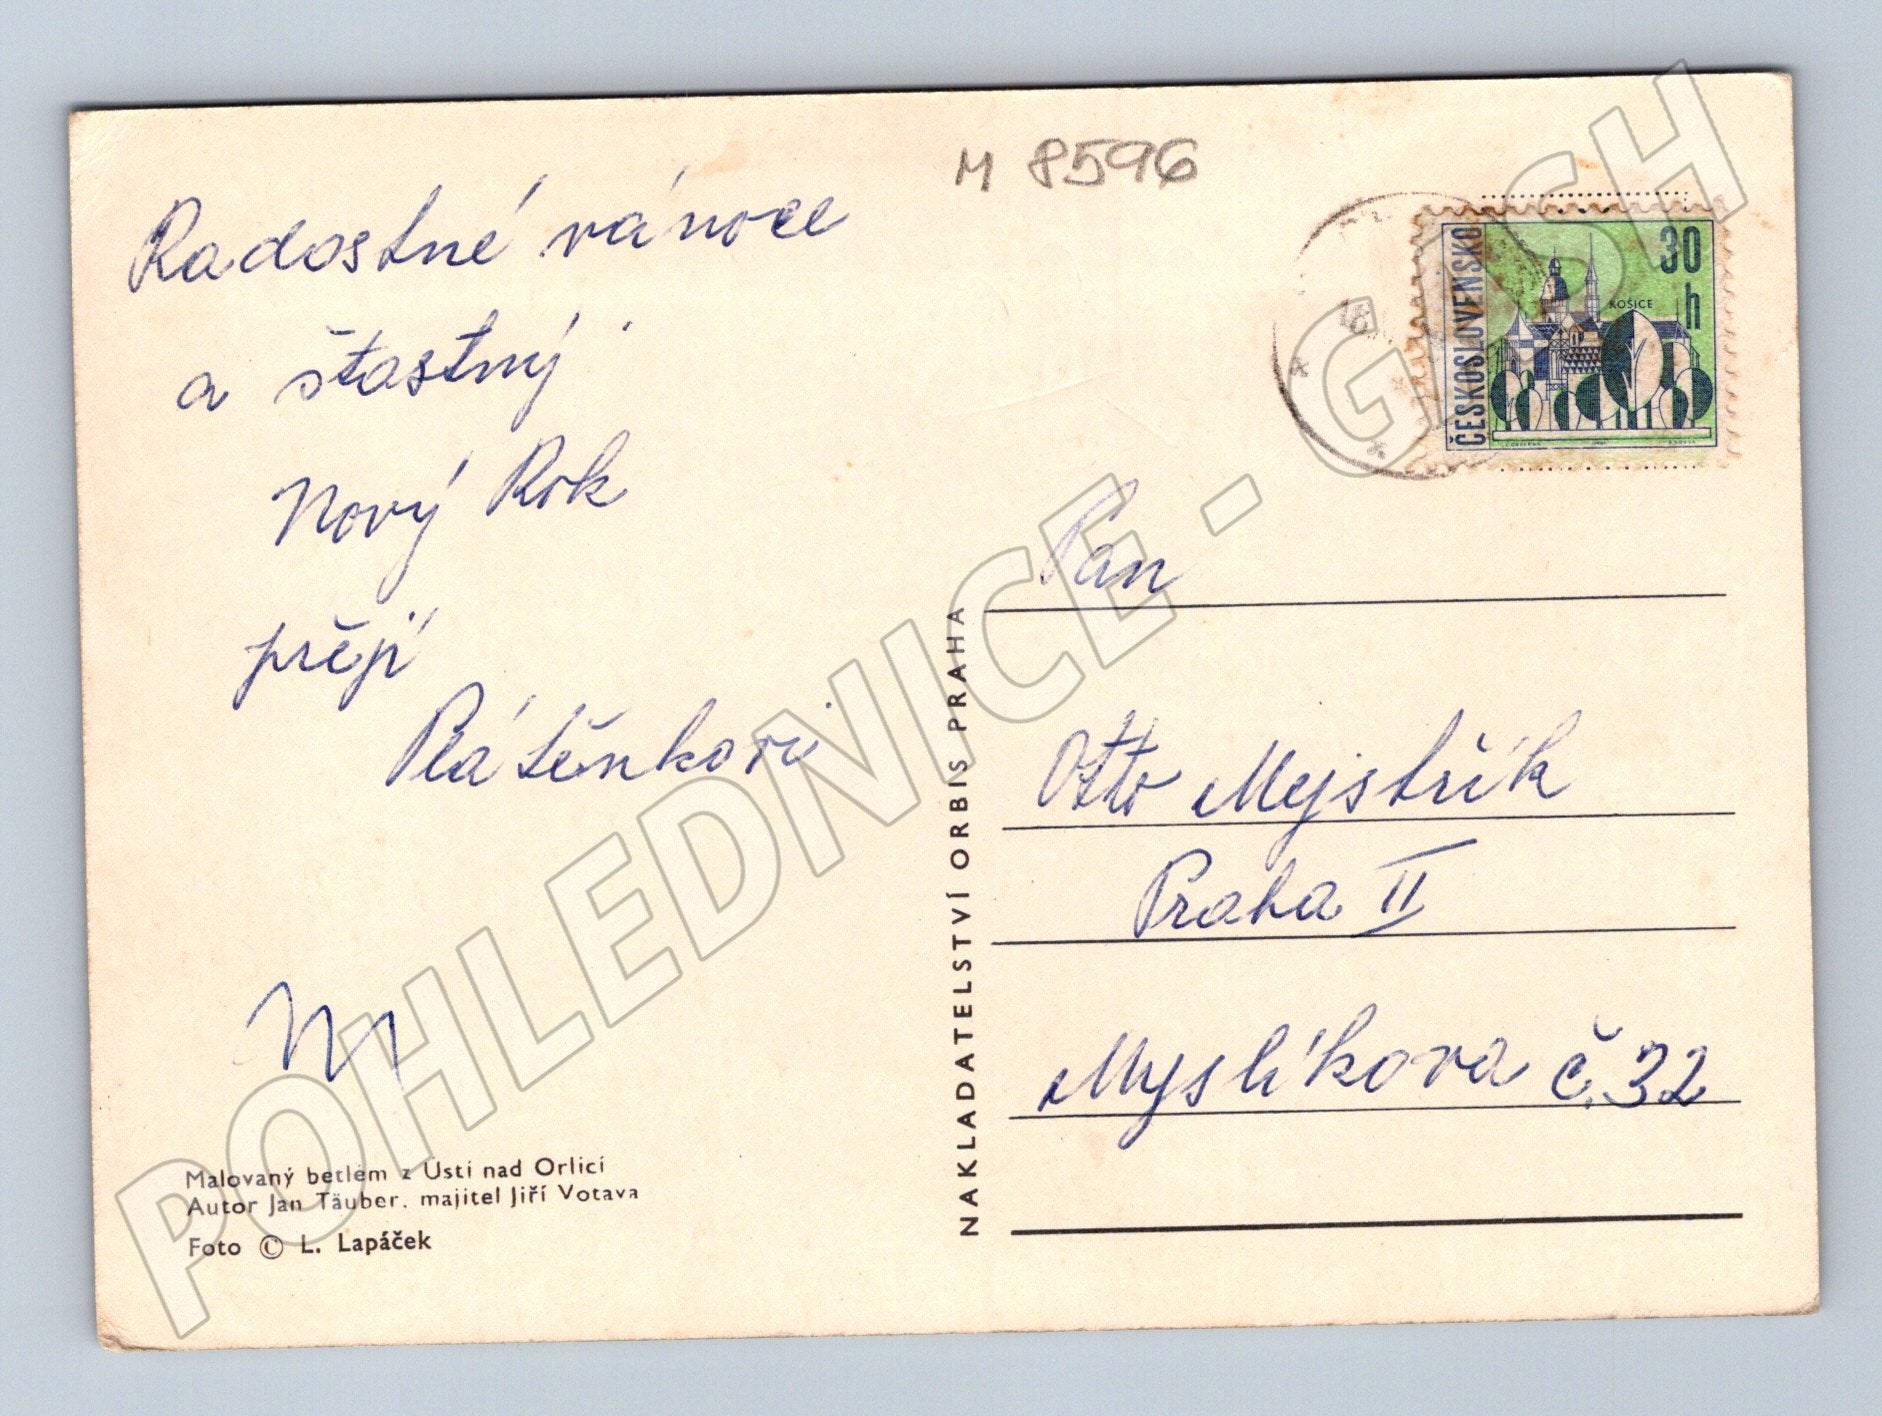 M 8596
Radostné vánoce
a šťastný
Nový Rok
přejí
Plátěnkovi
Malovaný betlém z Ústí nad Orlicí
Autor Jan Täuber, majitel Jiří Votava
Foto © L. Lapáček
NAKLADATELSTVÍ ORBIS PRAHA
ČESKOSLOVENSKO
30
h
KOŠICE
Pan
Otto Mejstřík
Praha II
Myslíkova č. 32
POHLEDNICE - GASH